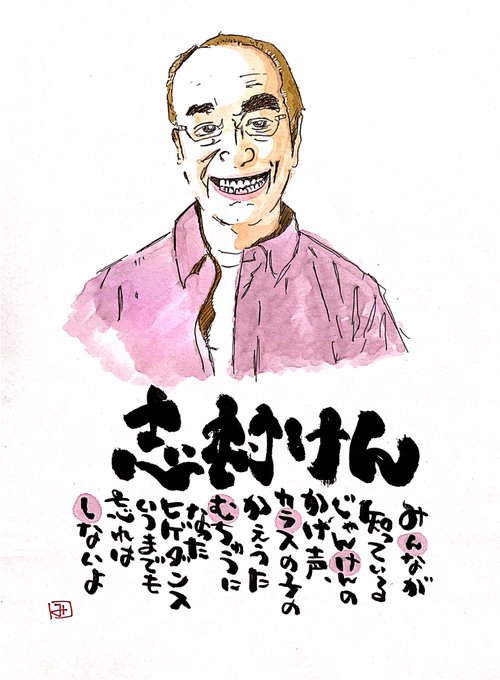 志村けん
みんなが
知っている
じゃんけんの
かけ声、
カラスの子の
かえうた
むちゅうに
なった
ヒゲダンス
いつまでも
忘れは
しないよ
み